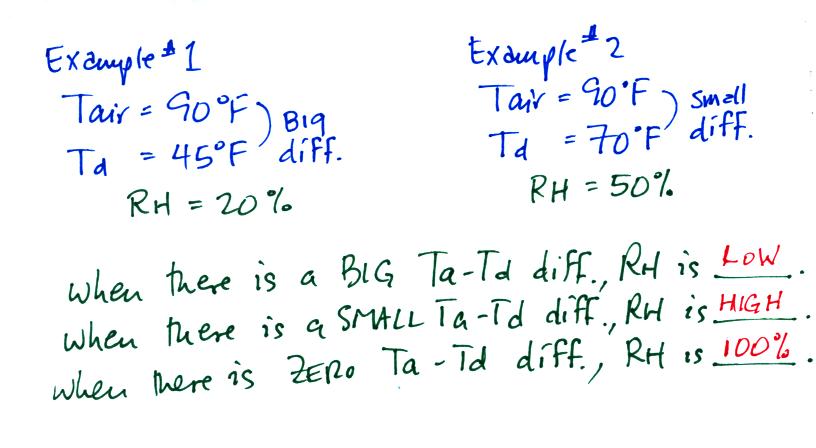 Example #1
Tair = 90°F
Td = 45°F
BIG
diff.
RH = 20%
Example #2
Tair = 90°F
Td = 70°F
Small
diff.
RH = 50%
when there is a BIG Ta-Td diff., RH is LOW.
when there is a SMALL Ta-Td diff., RH is HIGH.
when there is ZERO Ta-Td diff., RH is 100%.